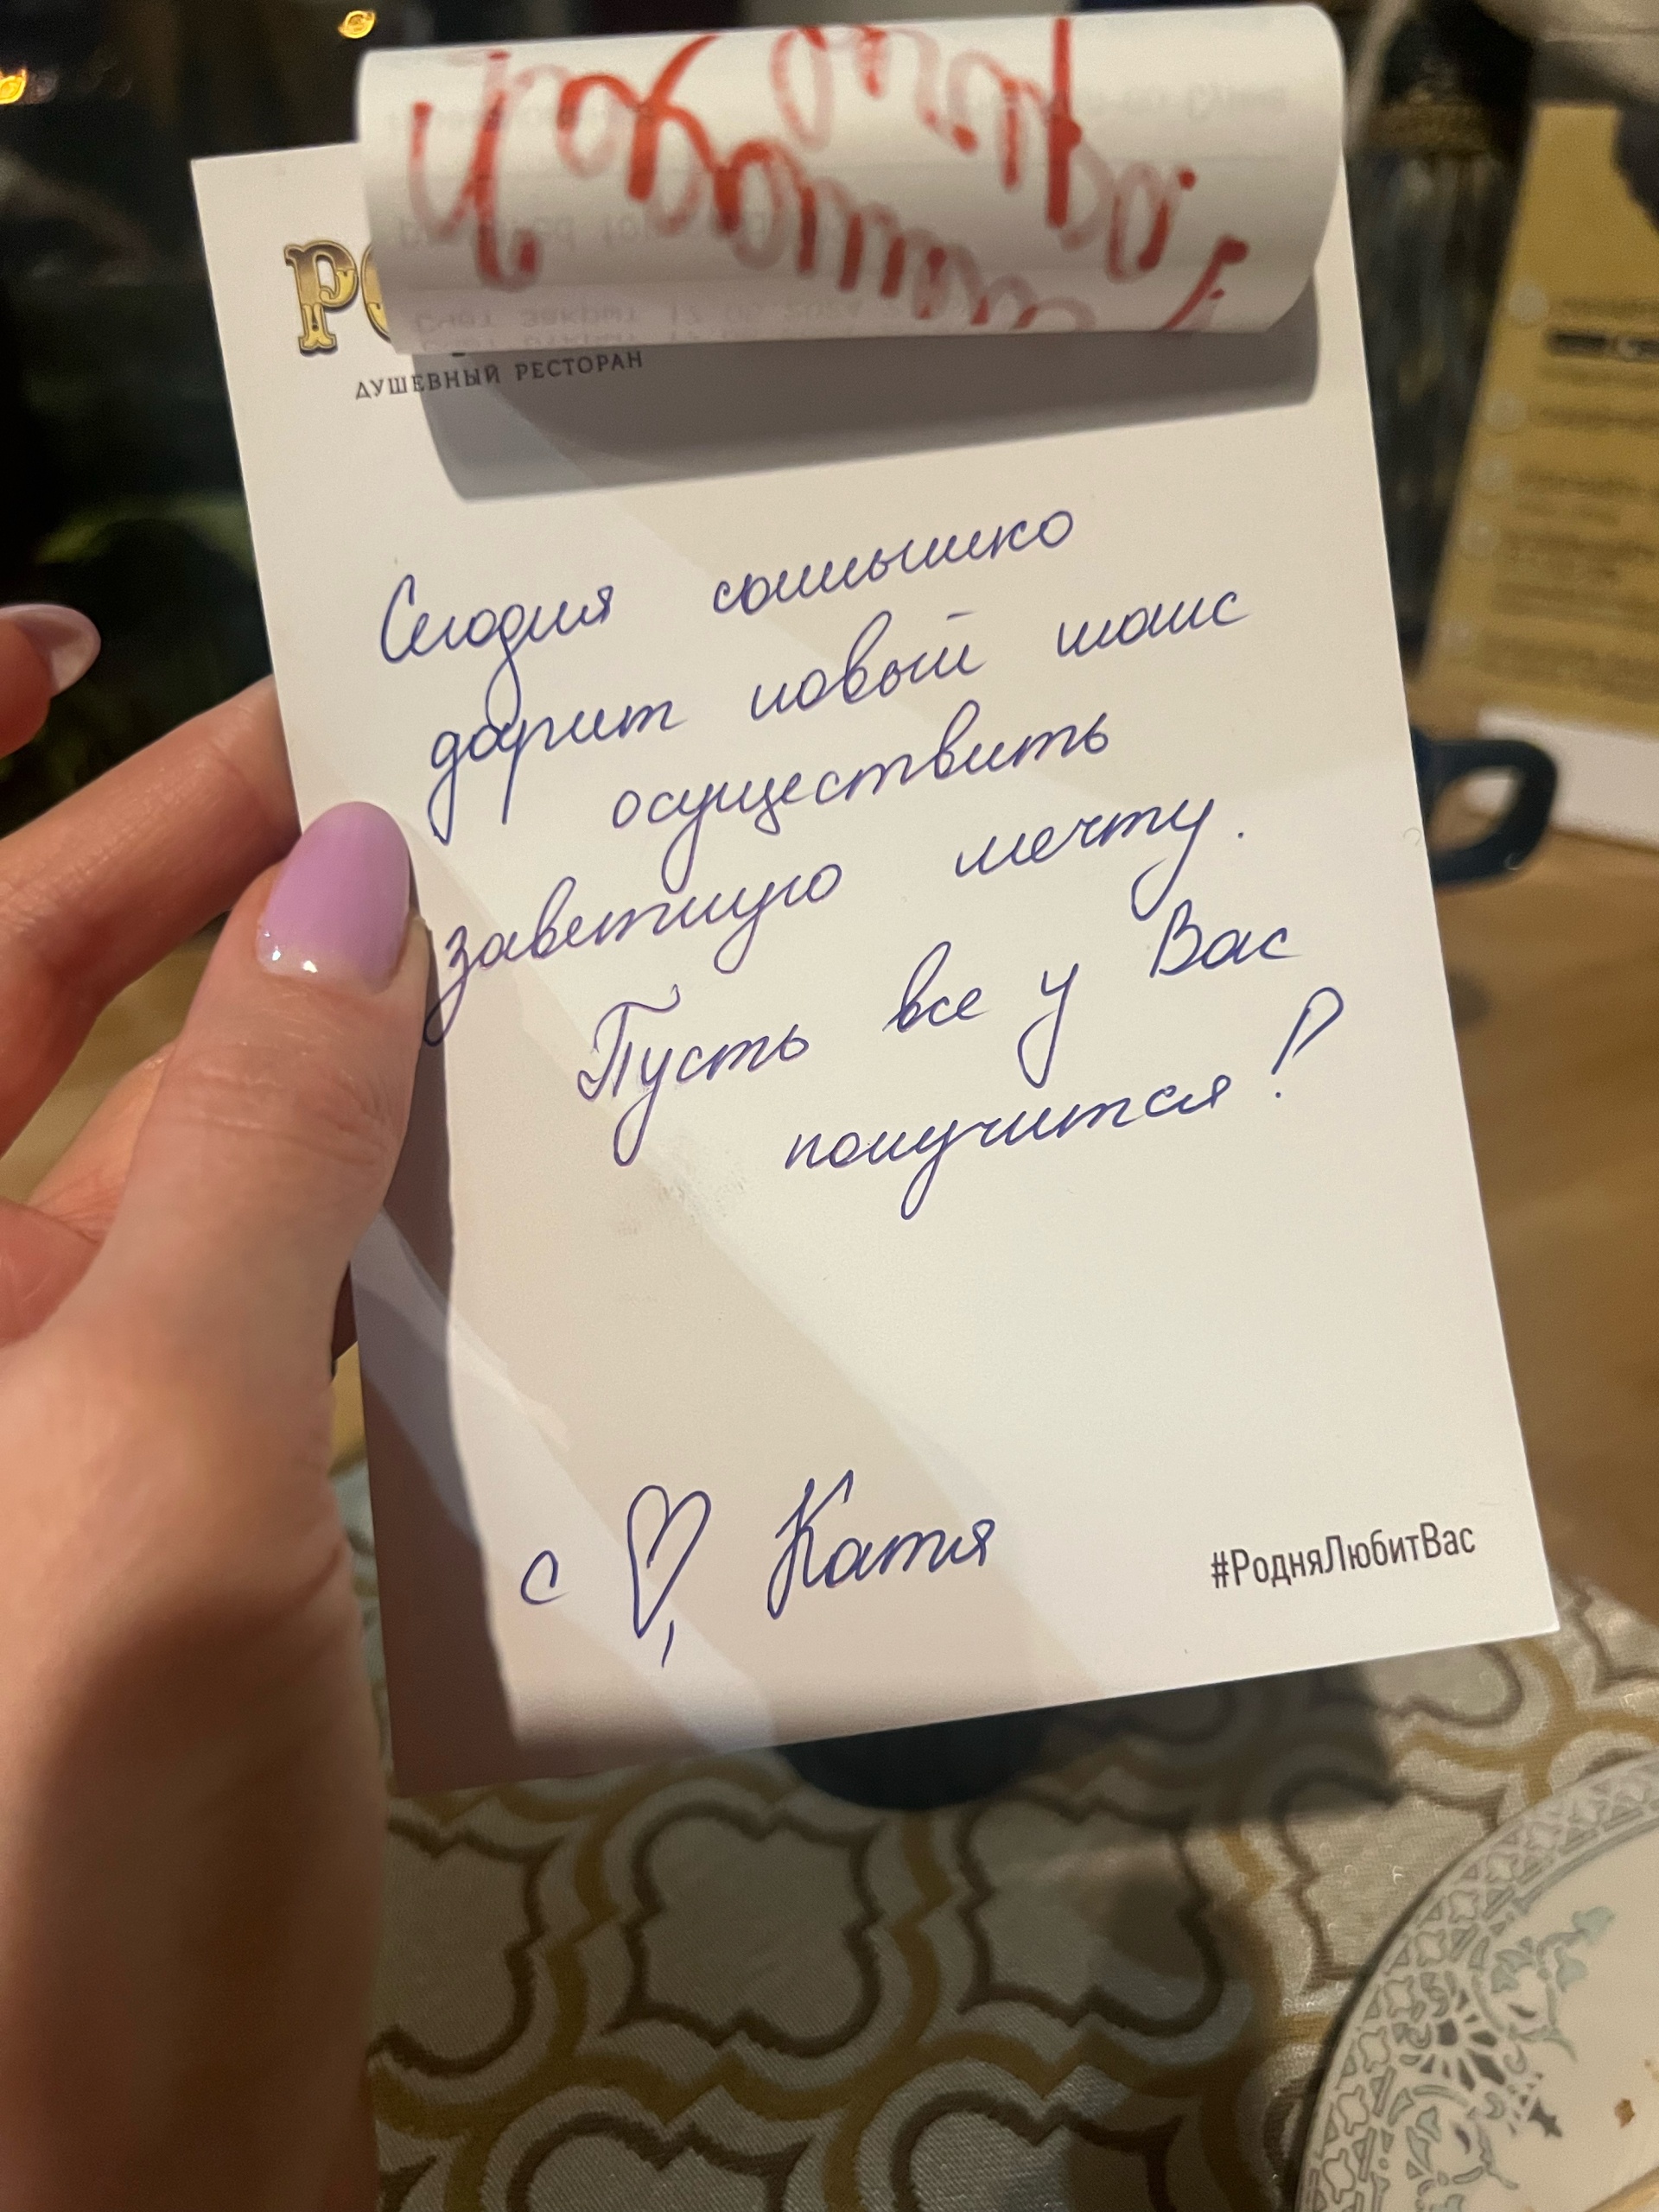 ДУШЕВНЫЙ РЕСТОРАН
Сегодня солнышко
дарит новый шанс
осуществить
заветную мечту.
Пусть все у Вас
получится!
с ♡, Катя
#РодняЛюбитВас